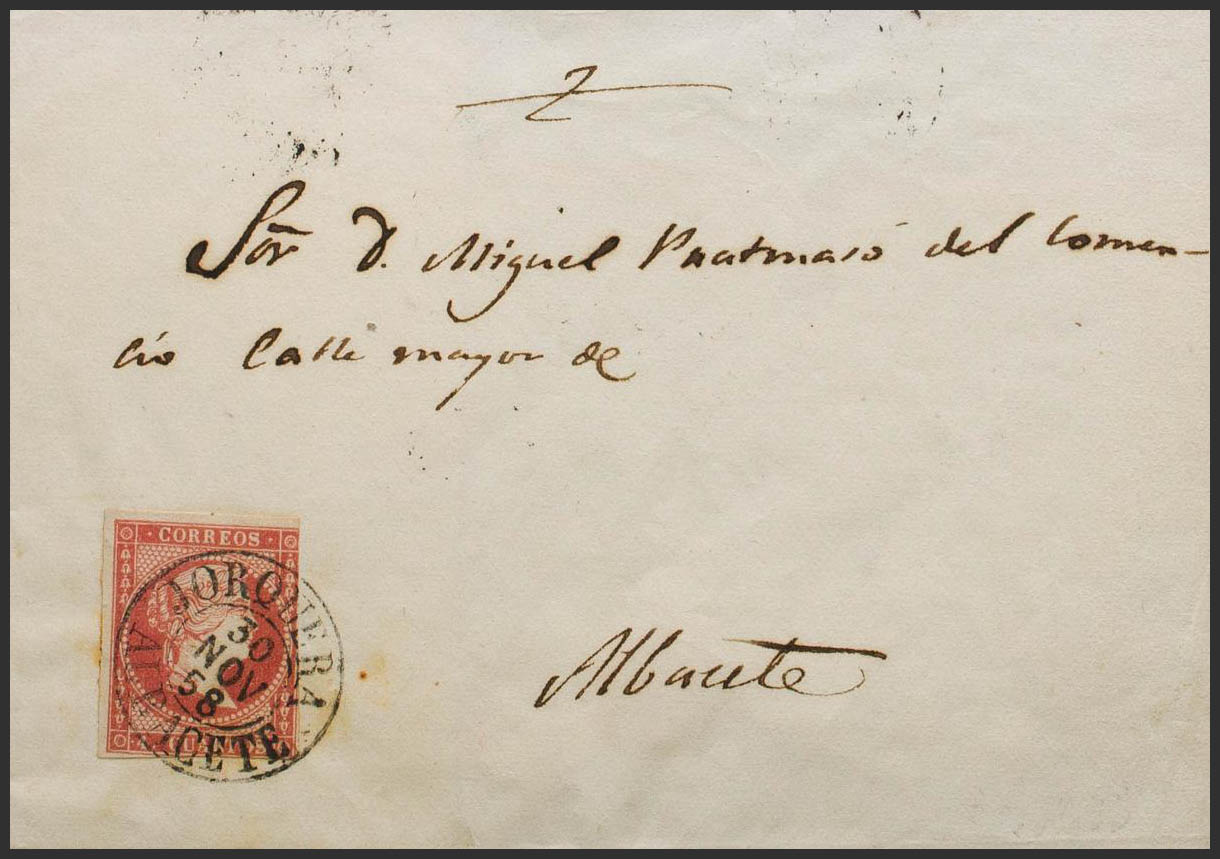 Sor D. Miguel Pratmasó del Comer-
cio Calle mayor de
Albacete
CORREOS
JORQUERA
30
NOV
58
ALBACETE